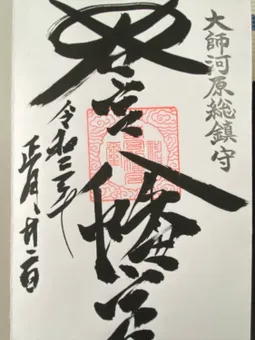 大師河原総鎮守
若宮八幡宮
令和二年
正月廿二日